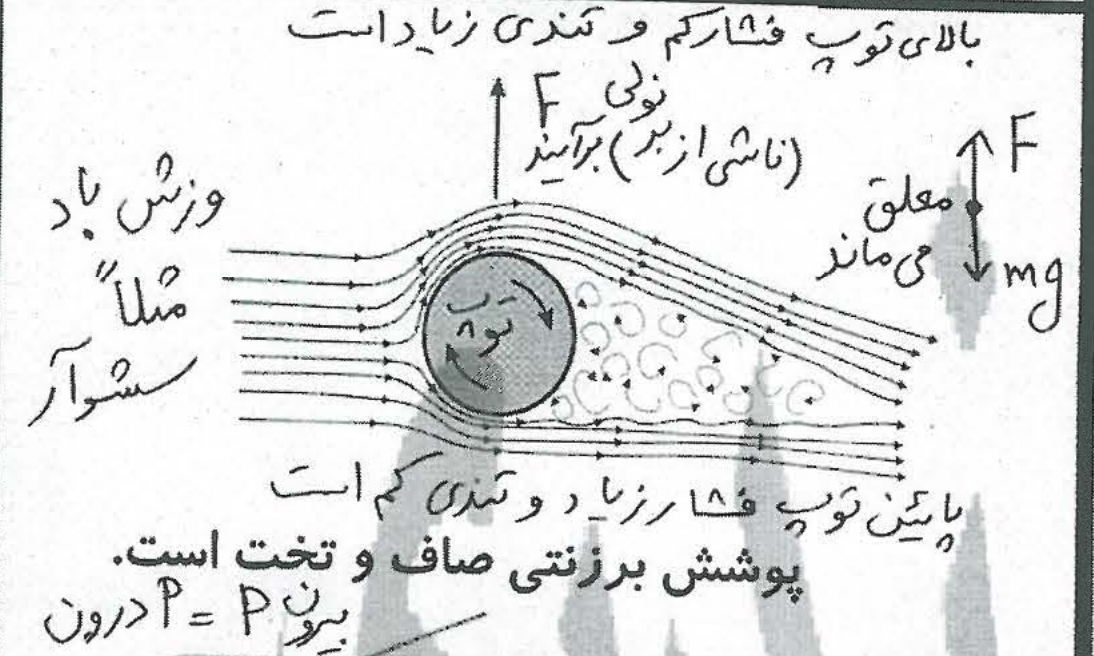 بالای توپ فشار کم و تندی زیاد است
F
(ناشی از برنولی) برآیند
F
معلق
می ماند
mg
وزش باد
مثلاً
سشوآر
توپ
پایئن توپ فشار زیاد و تندی کم است
پوشش برزنتی صاف و تخت است.
P درون = P بیرون